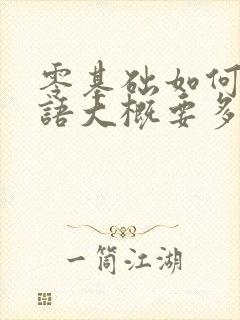 零基础如何
語大概要多
一筒江湖